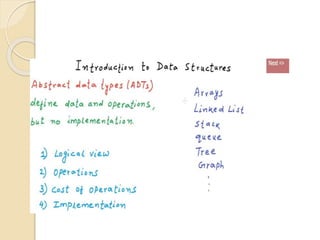 Introduction to Data Structures
Next =>
Abstract data types (ADTs)
define data and operations,
but no implementation.
1) Logical view
2) Operations
3) Cost of operations
4) Implementation
Arrays
Linked List
Stack
queue
Tree
Graph
.
: